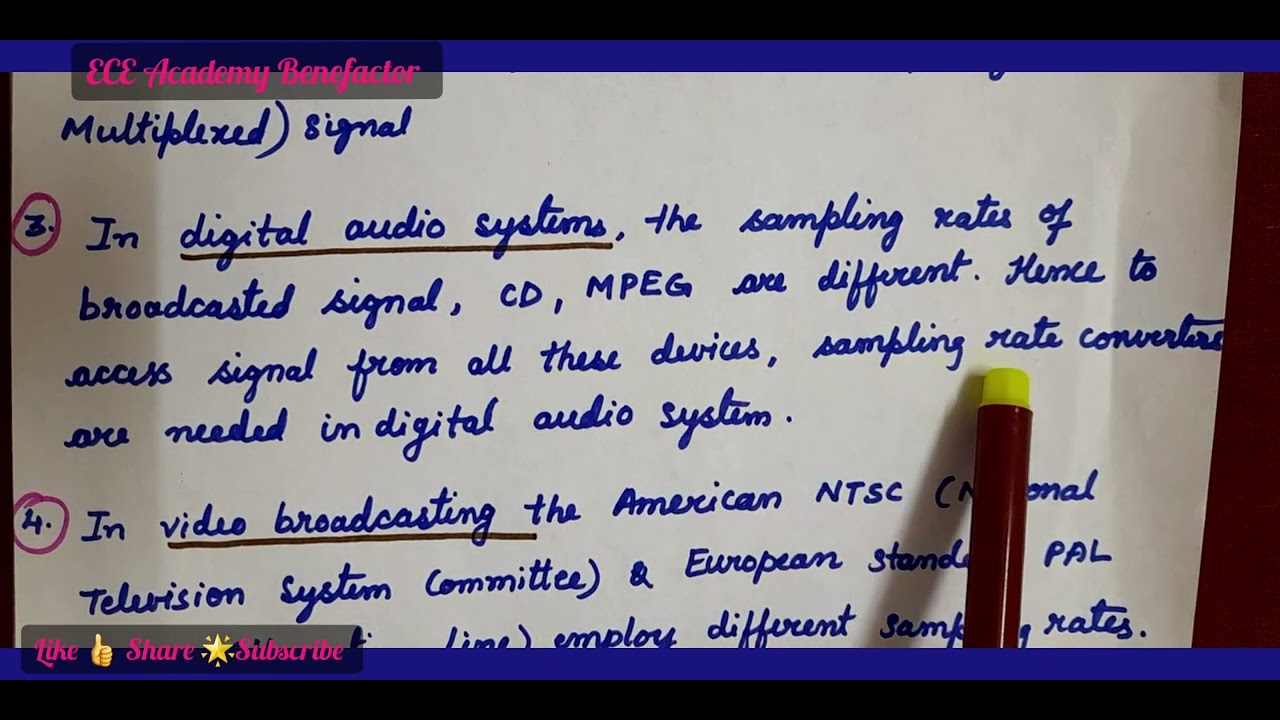 ECE Academy Benefactor
Multiplexed) Signal
3. In digital audio systems, the sampling rates of
broadcasted signal, CD, MPEG are different. Hence to
access signal from all these devices, sampling rate converters
are needed in digital audio system.
4. In video broadcasting the American NTSC
Television System Committee) & European PAL
line) employ different rates.
Like 👍 Share 🌟Subscribe